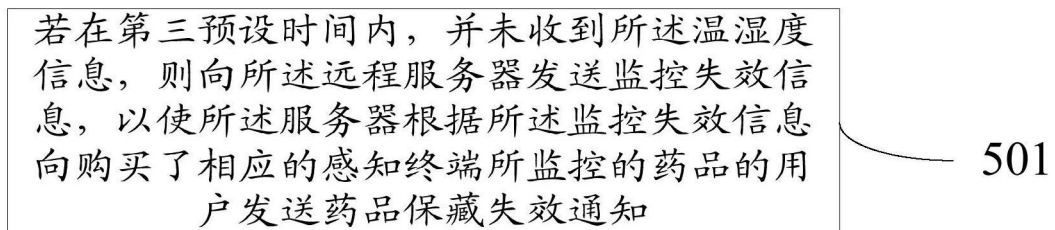 若在第三预设时间内，并未收到所述温湿度
信息，则向所述远程服务器发送监控失效信
息，以使所述服务器根据所述监控失效信息
向购买了相应的感知终端所监控的药品的用
户发送药品保藏失效通知
501